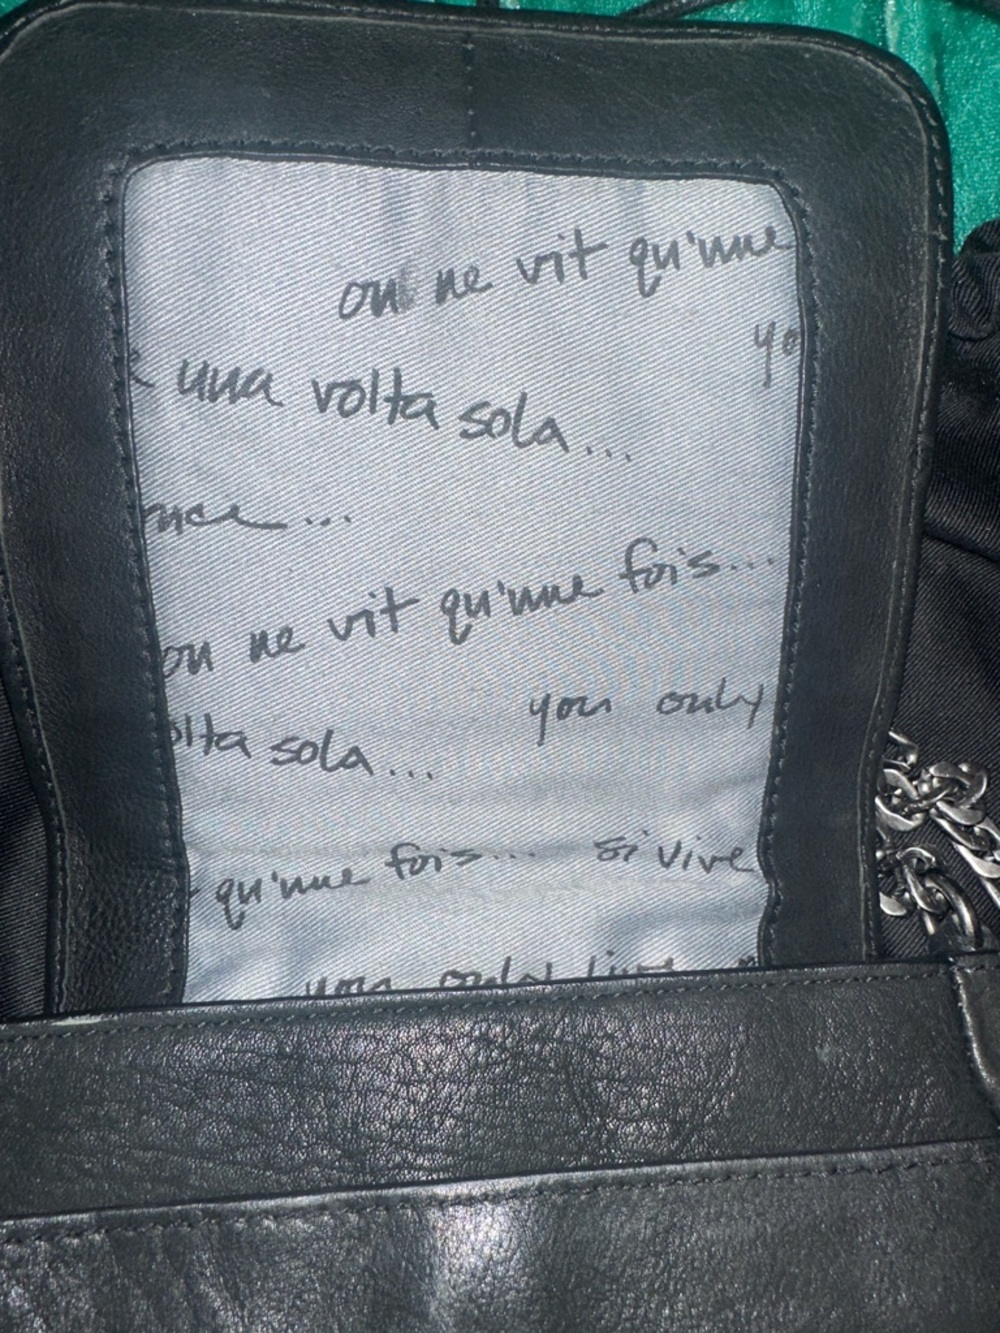 on ne vit qu'une
yo
una volta sola...
nce...
on ne vit qu'une fois...
you only
olta sola...
qu'une fois... si vive
you only live